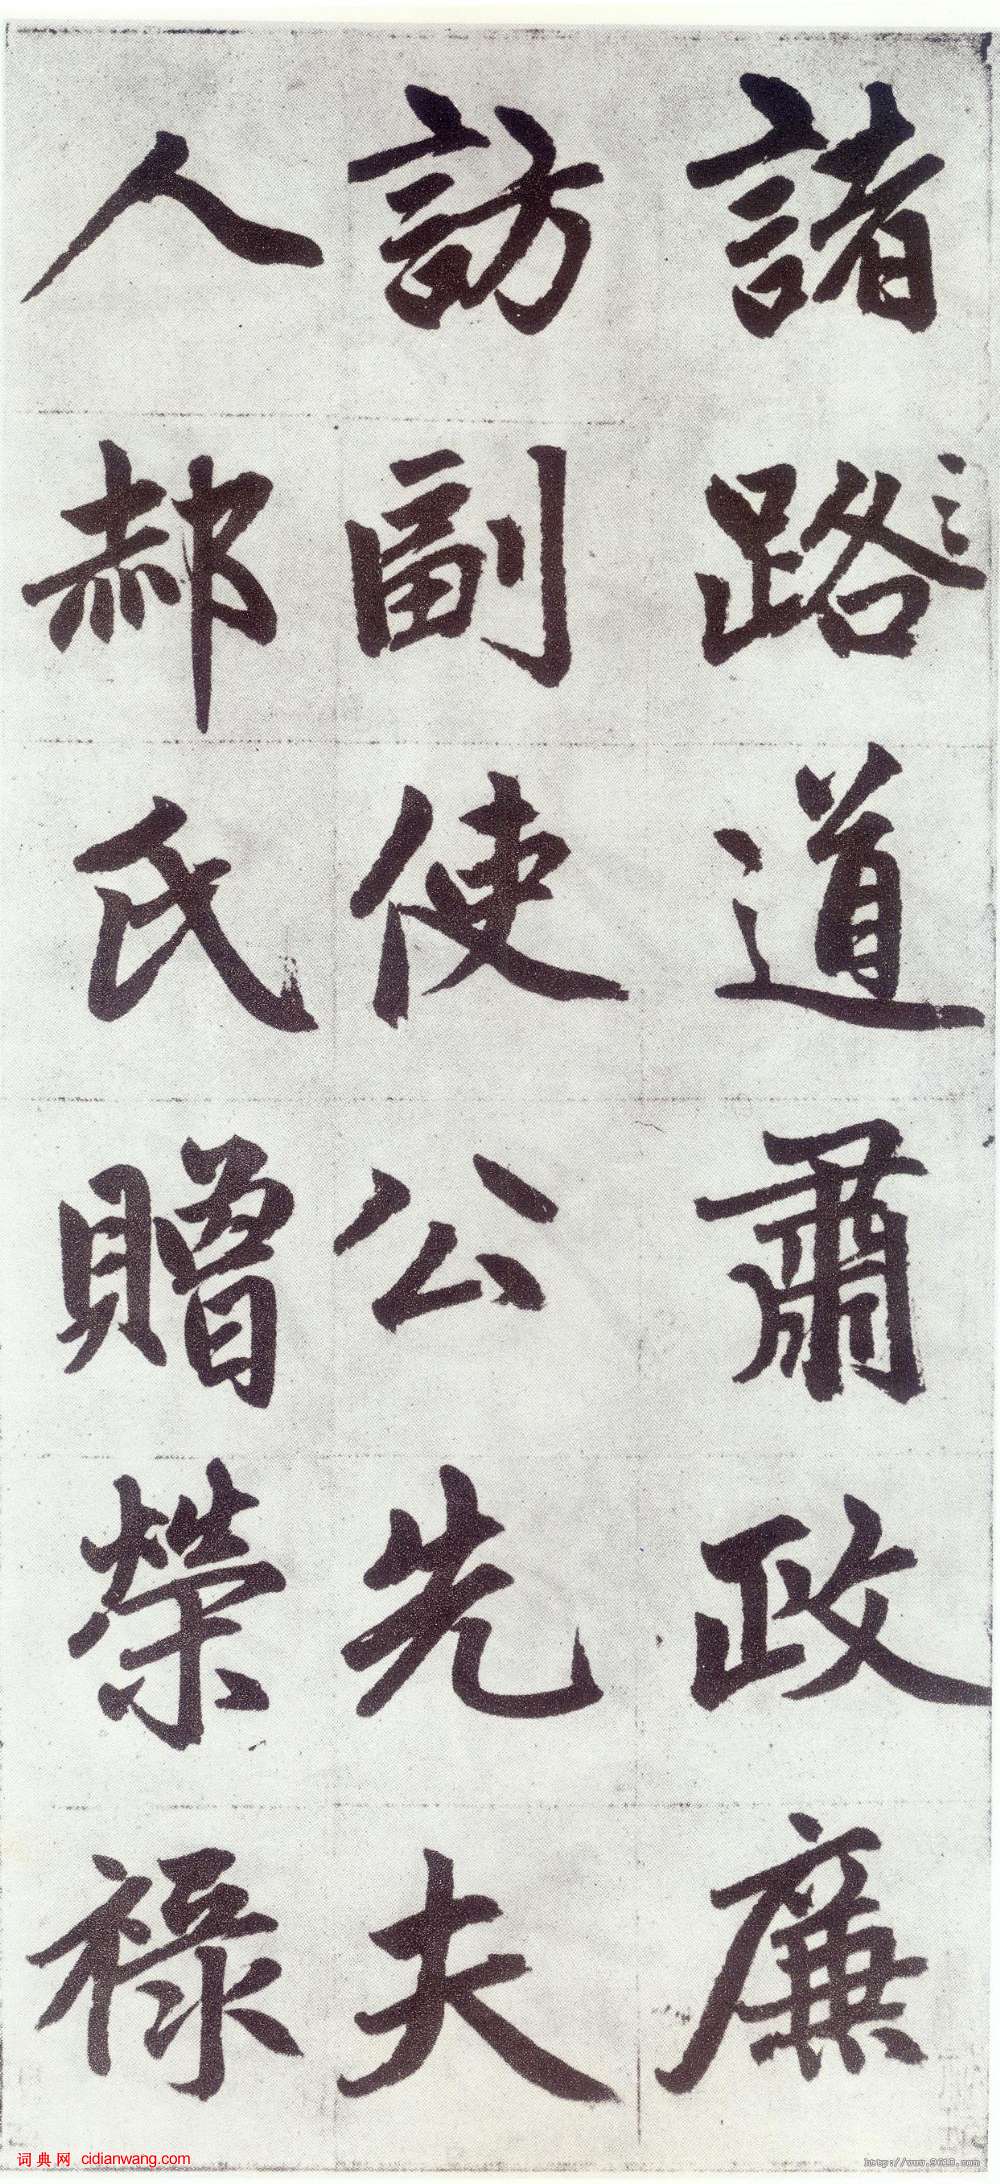 諸路道肅政廉
訪副使公先夫
人郝氏贈榮祿
词典网 cidianwang.com
http://www.9610.com